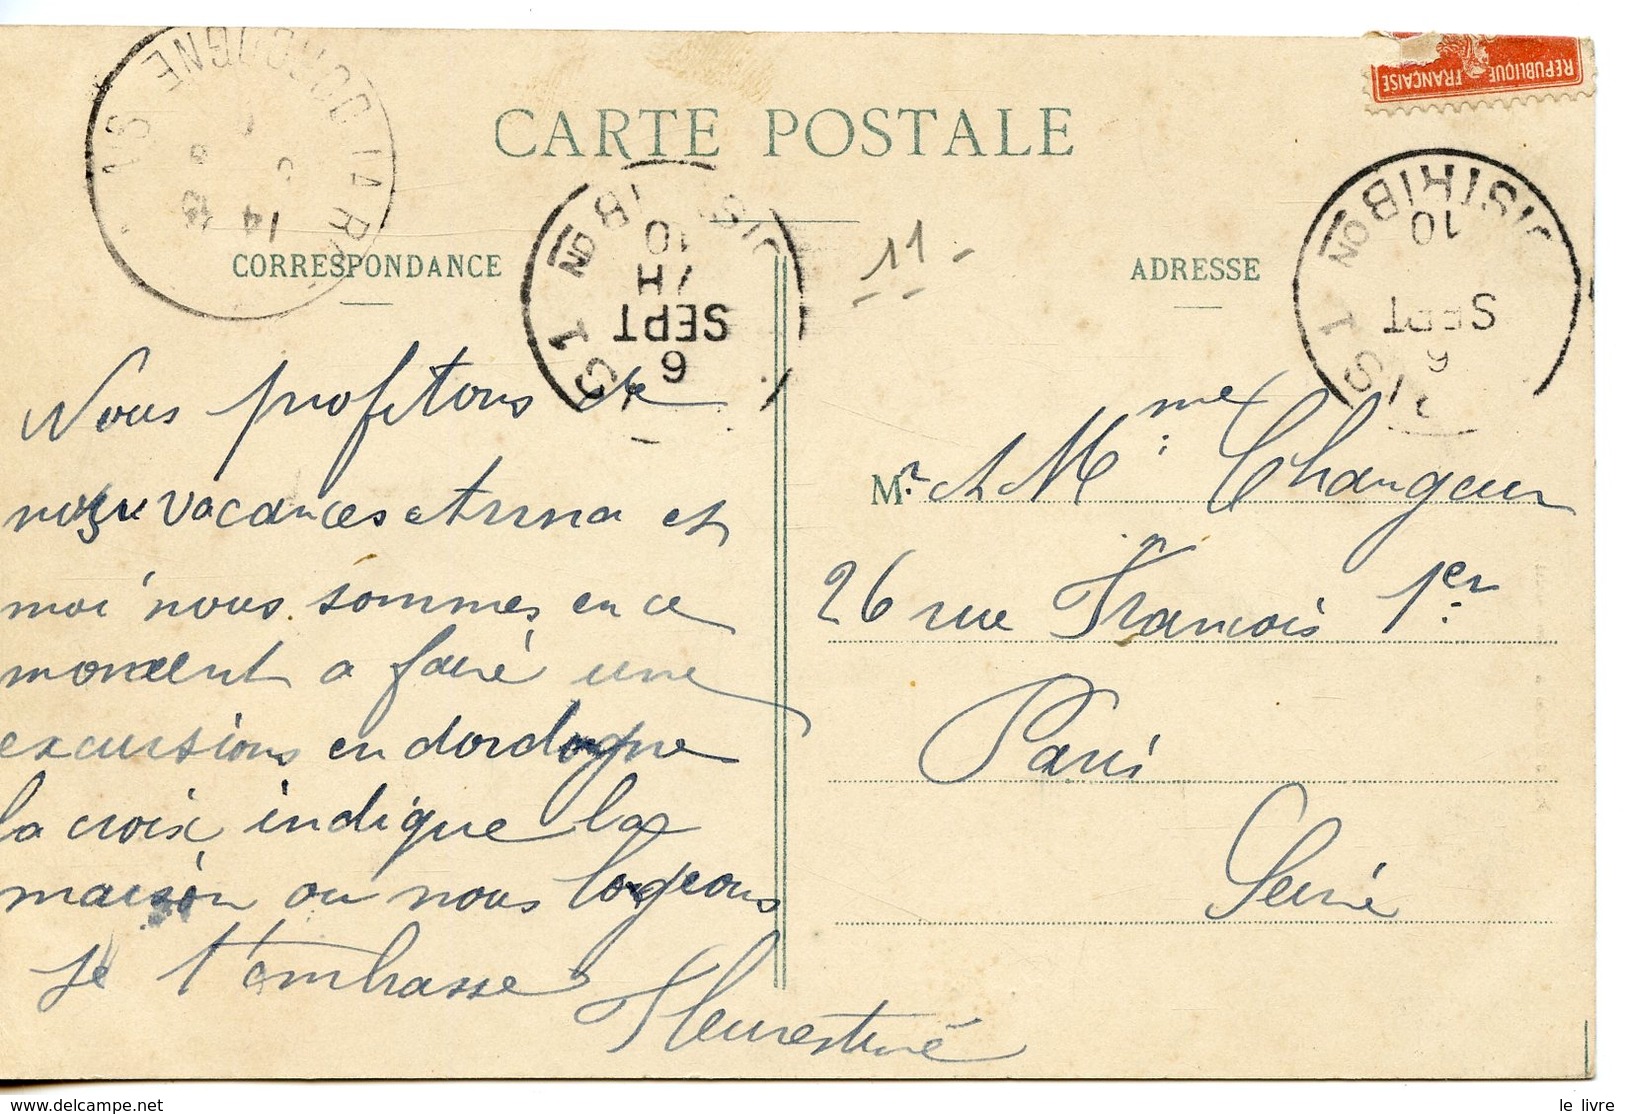 CARTE POSTALE
REPUBLIQUE FRANÇAISE
CORRESPONDANCE
Nous profitons de
nos vacances et Anna et
moi nous sommes en ce
moment a faire une
excursions en dordogne
la croix indique la
maison ou nous logeons
je t'embrasse
Fleurestine
11
ADRESSE
Mr et Mme Changeur
26 rue Francois 1er
Paris
Seine
DORDOGNE
14
13
10
7H
SEPT
6
DISTRIBON
10
SEPT
6
www.delcampe.net
le livre